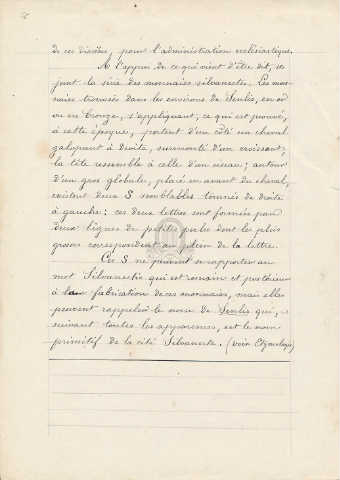 de ces diocèses, pour l'administration ecclésiastique.
A l'appui de ce qui vient d'être dit, je
joint la série des monnaies silvanectes. Les mon-
naies trouvées dans les environs de Senlis, en or
ou en bronze, s'appliquant, ce qui est prouvé,
à cette époque, portent d'un côté un cheval
galopant à droite, surmonté d'un croissant;
la tête ressemble à celle d'un oiseau; autour
d'un gros globule, placé en avant du cheval,
existent deux S semblables tournés de droite
à gauche: ces deux lettres sont formées par
deux lignes de petites perles dont les plus
grosses correspondent au plein de la lettre.
Ces S ne peuvent se rapporter au
mot Silvanectis qui est romain et postérieur
à la fabrication de ces monnaies, mais elles
peuvent rappeler le nom de Senlis qui,
suivant toutes les apparences, est le nom
primitif de la cité Silvanecte. (voir Etymologie)